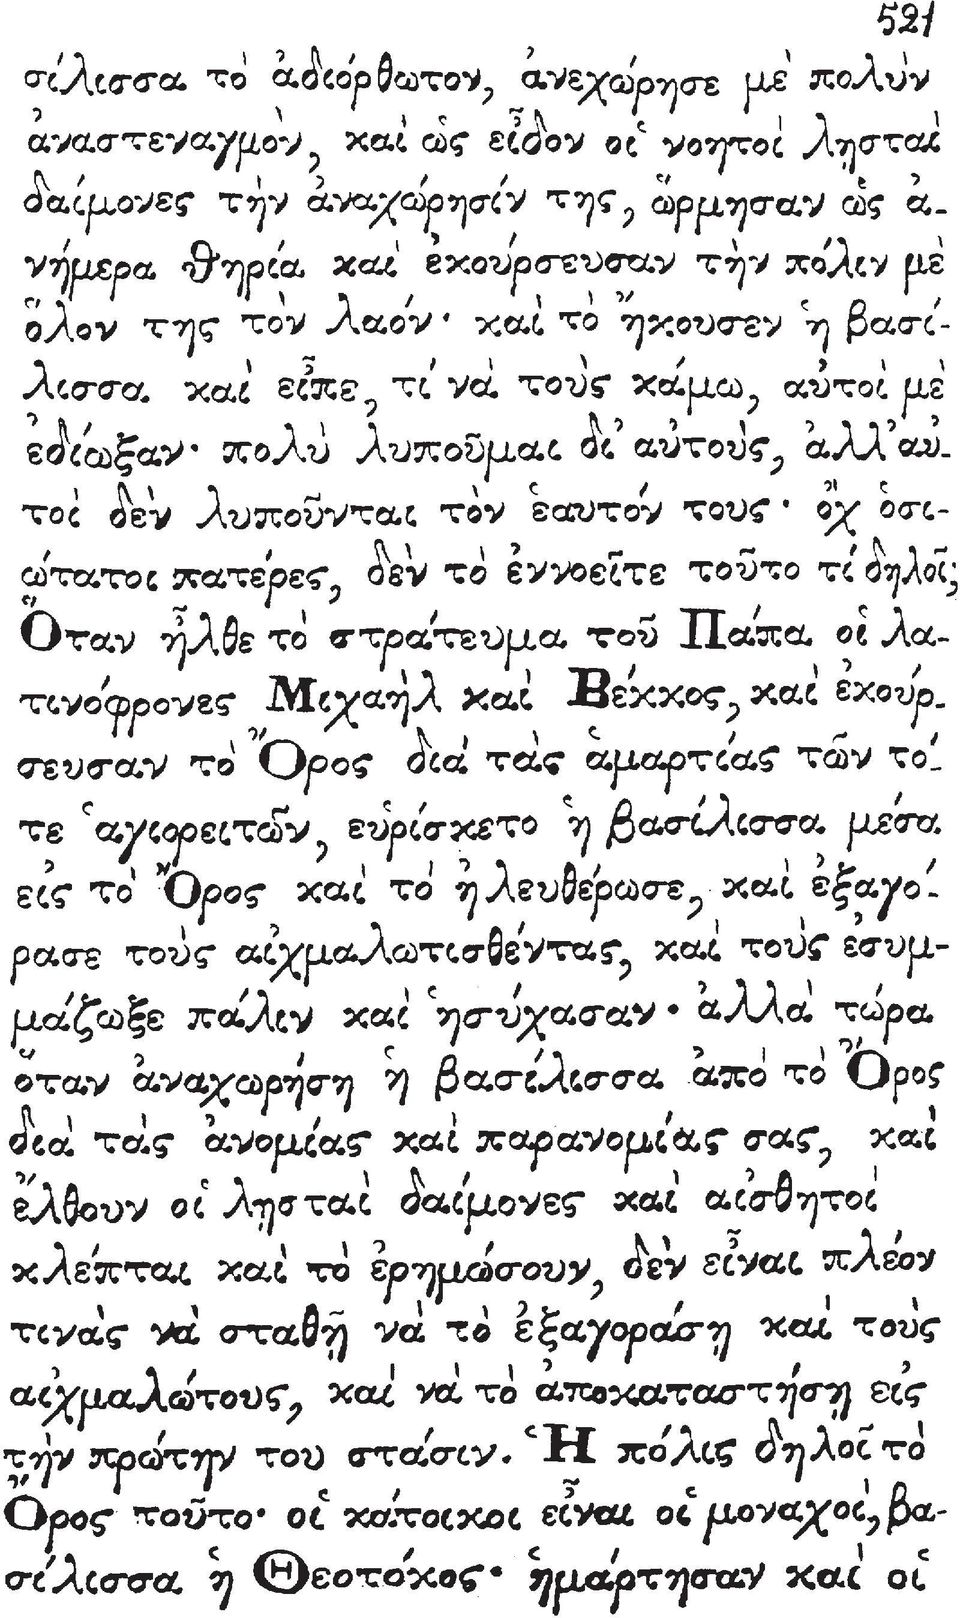 521
σίλισσα τὸ ἀδιόρθωτον, ἀνεχώρησε μὲ πολὺν
ἀναστεναγμόν, καὶ ὡς εἶδον οἱ νοητοὶ λῃσταὶ
δαίμονες τὴν ἀναχώρησίν της, ὥρμησαν ὡς ἀ-
νήμερα θηρία καὶ ἐκούρσευσαν τὴν πόλιν μὲ
ὅλον της τὸν λαόν· καὶ τὸ ἤκουσεν ἡ βασί-
λισσα καὶ εἶπε, τί νὰ τοὺς κάμω, αὐτοὶ μὲ
ἐδίωξαν· πολὺ λυποῦμαι δι' αὐτούς, ἀλλ' αὐ-
τοὶ δὲν λυποῦνται τὸν ἑαυτόν τους· ὂχ ὁσι-
ώτατοι πατέρες, δὲν τὸ ἐννοεῖτε τοῦτο τί δηλοῖ;
Ὅταν ἦλθε τὸ στράτευμα τοῦ Πάπα οἱ λα-
τινόφρονες Μιχαὴλ καὶ Βέκκος, καὶ ἐκούρ-
σευσαν τὸ Ὄρος διὰ τὰς ἁμαρτίας τῶν τό-
τε ἁγιορειτῶν, εὑρίσκετο ἡ βασίλισσα μέσα
εἰς τὸ Ὄρος καὶ τὸ ἠλευθέρωσε, καὶ ἐξαγό-
ρασε τοὺς αἰχμαλωτισθέντας, καὶ τοὺς ἐσυμ-
μάζωξε πάλιν καὶ ἡσύχασαν· ἀλλὰ τώρα
ὅταν ἀναχωρήσῃ ἡ βασίλισσα ἀπὸ τὸ Ὄρος
διὰ τὰς ἀνομίας καὶ παρανομίας σας, καὶ
ἔλθουν οἱ λῃσταὶ δαίμονες καὶ αἰσθητοὶ
κλέπται καὶ τὸ ἐρημώσουν, δὲν εἶναι πλέον
τινὰς νὰ σταθῇ νὰ τὸ ἐξαγοράσῃ καὶ τοὺς
αἰχμαλώτους, καὶ νὰ τὸ ἀποκαταστήσῃ εἰς
τὴν πρώτην του στάσιν. Ἡ πόλις δηλοῖ τὸ
Ὄρος τοῦτο· οἱ κάτοικοι εἶναι οἱ μοναχοί, βα-
σίλισσα ἡ Θεοτόκος· ἡμάρτησαν καὶ οἱ